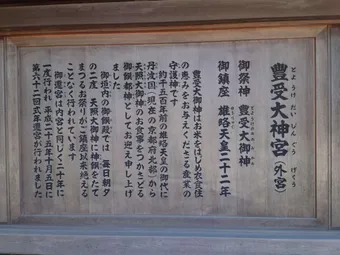 とようけだいじんぐう げくう
豊受大神宮（外宮）
御祭神 豊受大御神
御鎮座 雄略天皇二十二年
豊受大御神はお米をはじめ衣食住
の恵みをお与えくださる産業の
守護神です
約千五百年前の雄略天皇の御代に
丹波国（現在の京都府北部）から
天照大御神のお食事をつかさどる
御饌都神としてお迎え申し上げ
ました
御垣内の御饌殿では 毎日朝夕
の二度 天照大御神に神饌をたて
まつるお祭りがご鎮座以来絶える
ことなく行われています
御遷宮は内宮と同じく二十年に
一度行われ 平成二十五年十月五日に
第六十二回式年遷宮が行われました